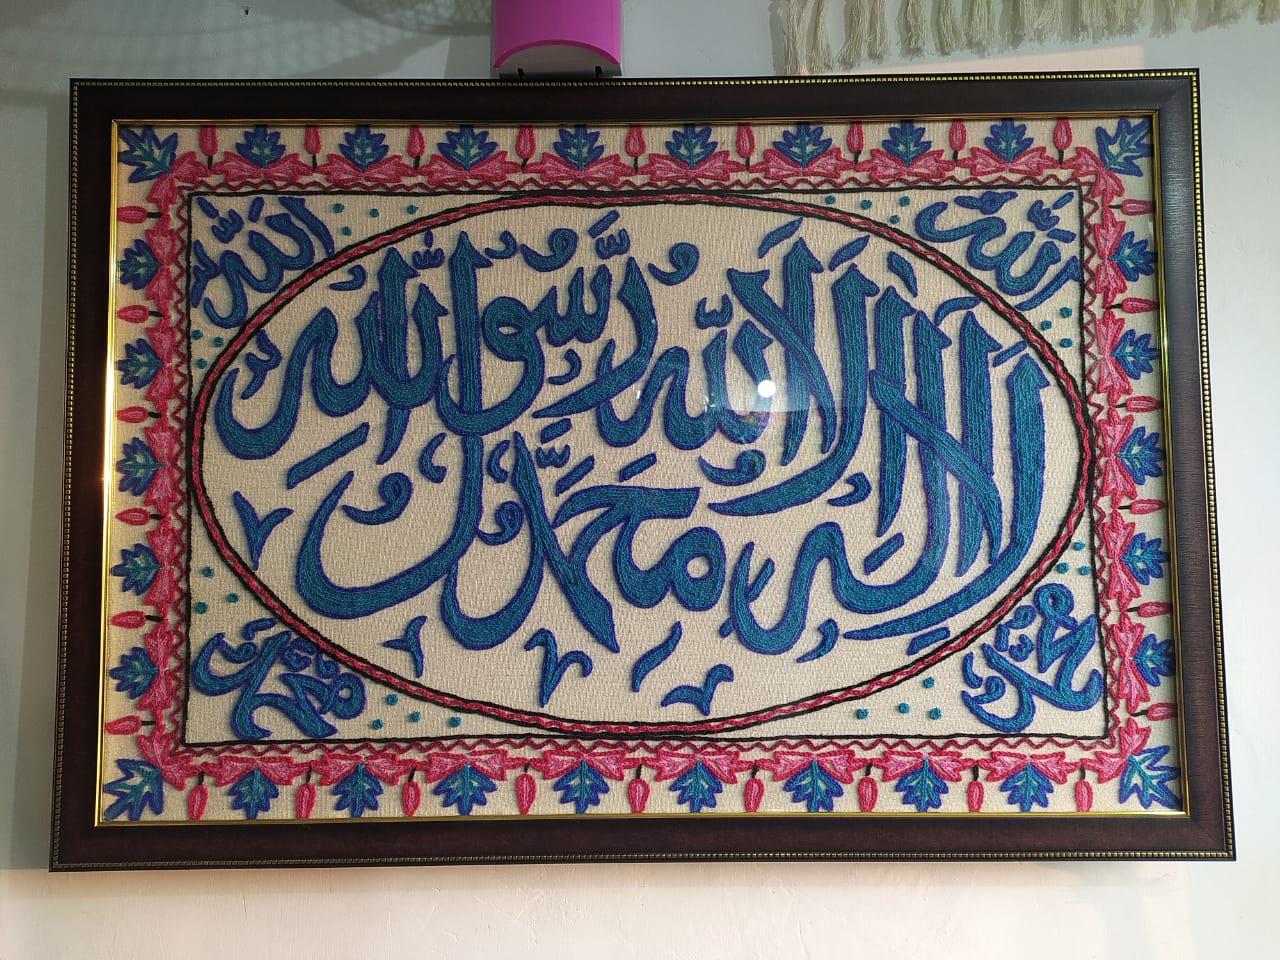 الله
الله
لا اله الا الله
محمد رسول الله
محمد
محمد